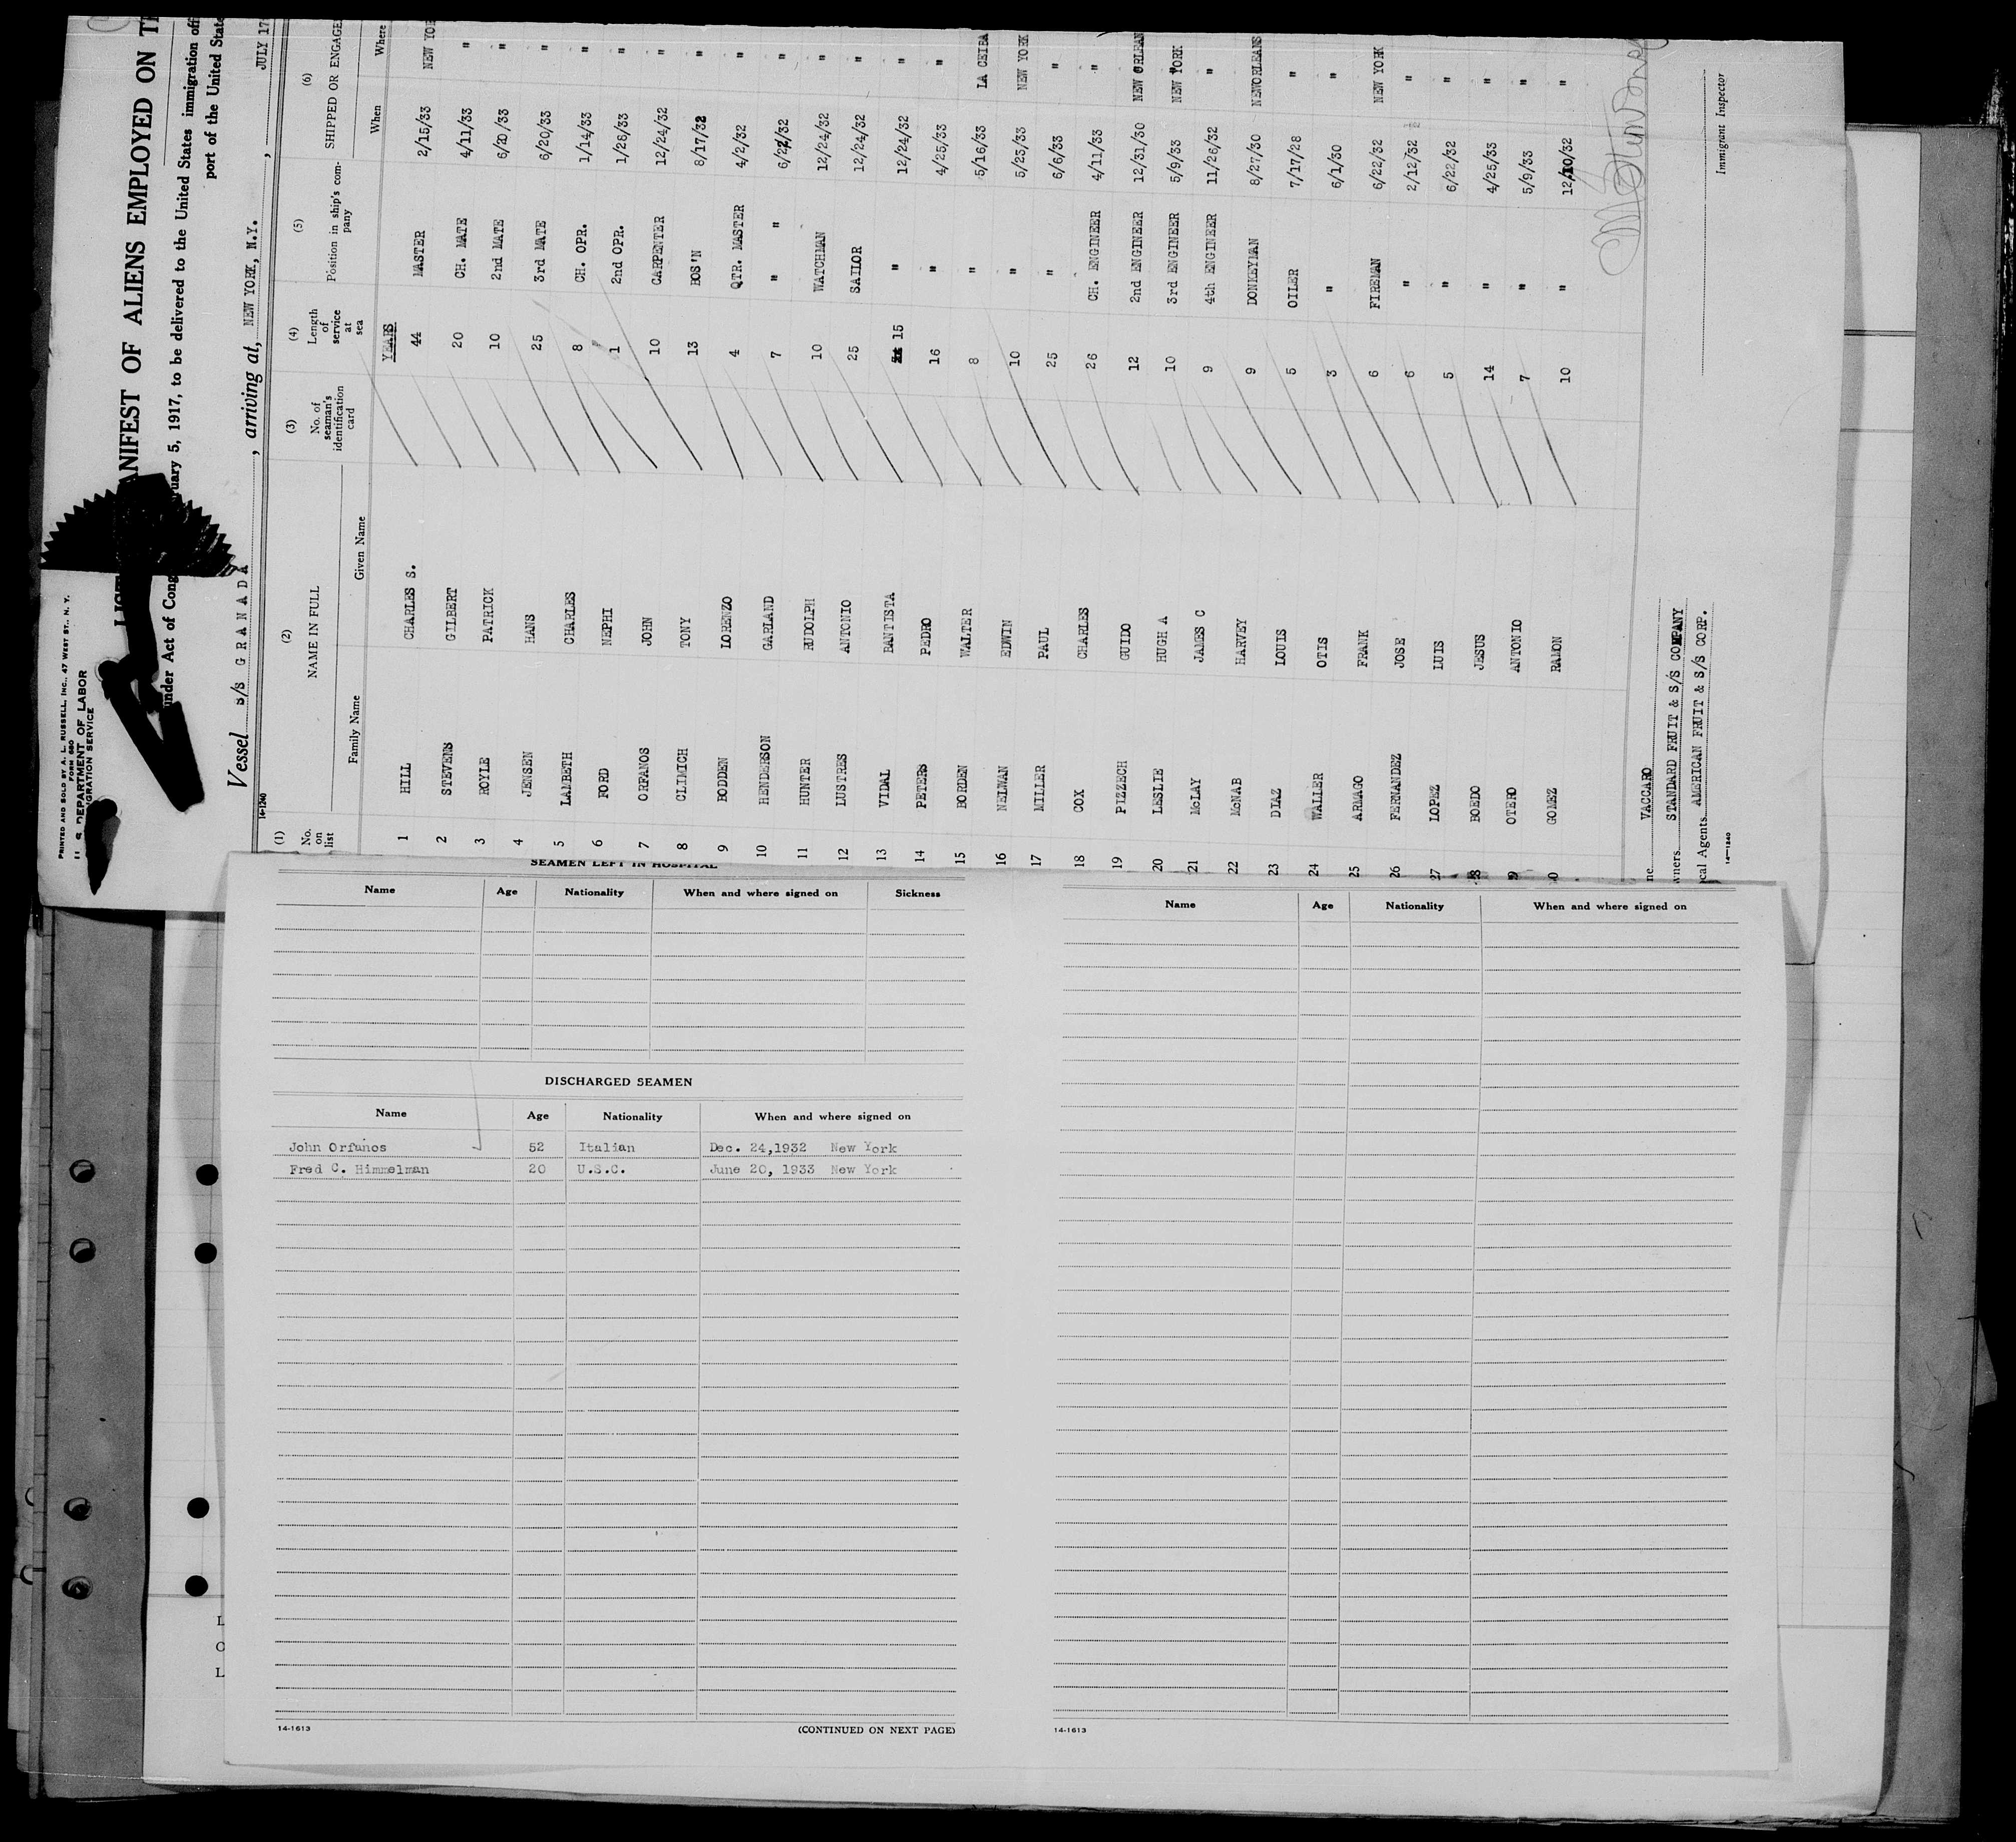 PRINTED AND SOLD BY A. L. RUSSELL, INC., 47 WEST ST., N. Y.
U. S. DEPARTMENT OF LABOR
FORM 680
IGRATION SERVICE
ANIFEST OF ALIENS EMPLOYED ON
under Act of Cong ruary 5, 1917, to be delivered to the United States immigration
port of the United State
Vessel S/S GRANADA, arriving at, NEW YORK, N.Y., JULY 17
14-1240
(1) (2) (3) (4) (5) (6)
No. on list NAME IN FULL No. of seaman's identification card Length of service at sea Position in ship's company SHIPPED OR ENGAGE
Family Name Given Name When Where
YEARS
1 HILL CHARLES S. 44 MASTER 2/15/33 NEW YOR
2 STEVENS GILBERT 20 CH. MATE 4/11/33 "
3 ROYLE PATRICK 10 2nd MATE 6/20/33 "
4 JENSEN HANS 25 3rd MATE 6/20/33 "
5 LAMBETH CHARLES 8 CH. OPR. 1/14/33 "
6 FORD NEPHI 1 2nd OPR. 1/26/33 "
7 ORFANOS JOHN 10 CARPENTER 12/24/32 "
8 CLIMICH TONY 13 BOS'N 8/17/32 "
9 BODDEN LORENZO 4 QTR. MASTER 4/2/32 "
10 HENDERSON GARLAND 7 " " 6/22/32 "
11 HUNTER RUDOLPH 10 WATCHMAN 12/24/32 "
12 LUSTRES ANTONIO 25 SAILOR 12/24/32 "
13 VIDAL BANTISTA 15 " 12/24/32 "
14 PETERS PEDRO 16 " 4/25/33 "
15 BORDEN WALTER 8 " 5/16/33 LA CEIBA
16 NELMAN EDWIN 10 " 5/23/33 NEW YORK
17 MILLER PAUL 25 " 6/6/33 "
18 COX CHARLES 26 CH. ENGINEER 4/11/33 "
19 PIZZECH GUIDO 12 2nd ENGINEER 12/31/30 NEW ORLEAN
20 LESLIE HUGH A 10 3rd ENGINEER 5/9/33 NEW YORK
21 McLAY JAMES C 9 4th ENGINEER 11/26/32 "
22 McNAB HARVEY 9 DONKEYMAN 8/27/30 NEWORLEANS
23 DIAZ LOUIS 5 OILER 7/17/28 "
24 WALLER OTIS 3 " 6/1/30 "
25 ARMAGO FRANK 6 FIREMAN 6/22/32 NEW YORK
26 FERNANDEZ JOSE 6 " 2/12/32 "
27 LOPEZ LUIS 5 " 6/22/32 "
28 BOEDO JESUS 14 " 4/25/33 "
9 OTERO ANTONIO 7 " 5/9/33 "
0 GOMEZ RAMON 10 " 12/10/32 "
ne VACCARO
wners STANDARD FRUIT & S/S COMPANY
cal Agents AMERICAN FRUIT & S/S CORP.
14-1240
Immigrant Inspector
SEAMEN LEFT IN HOSPITAL
Name Age Nationality When and where signed on Sickness
DISCHARGED SEAMEN
Name Age Nationality When and where signed on
John Orfanos 52 Italian Dec. 24,1932 New York
Fred C. Himmelman 20 U.S.C. June 20, 1933 New York
14-1613 (CONTINUED ON NEXT PAGE)
Name Age Nationality When and where signed on
14-1613
L
O
L